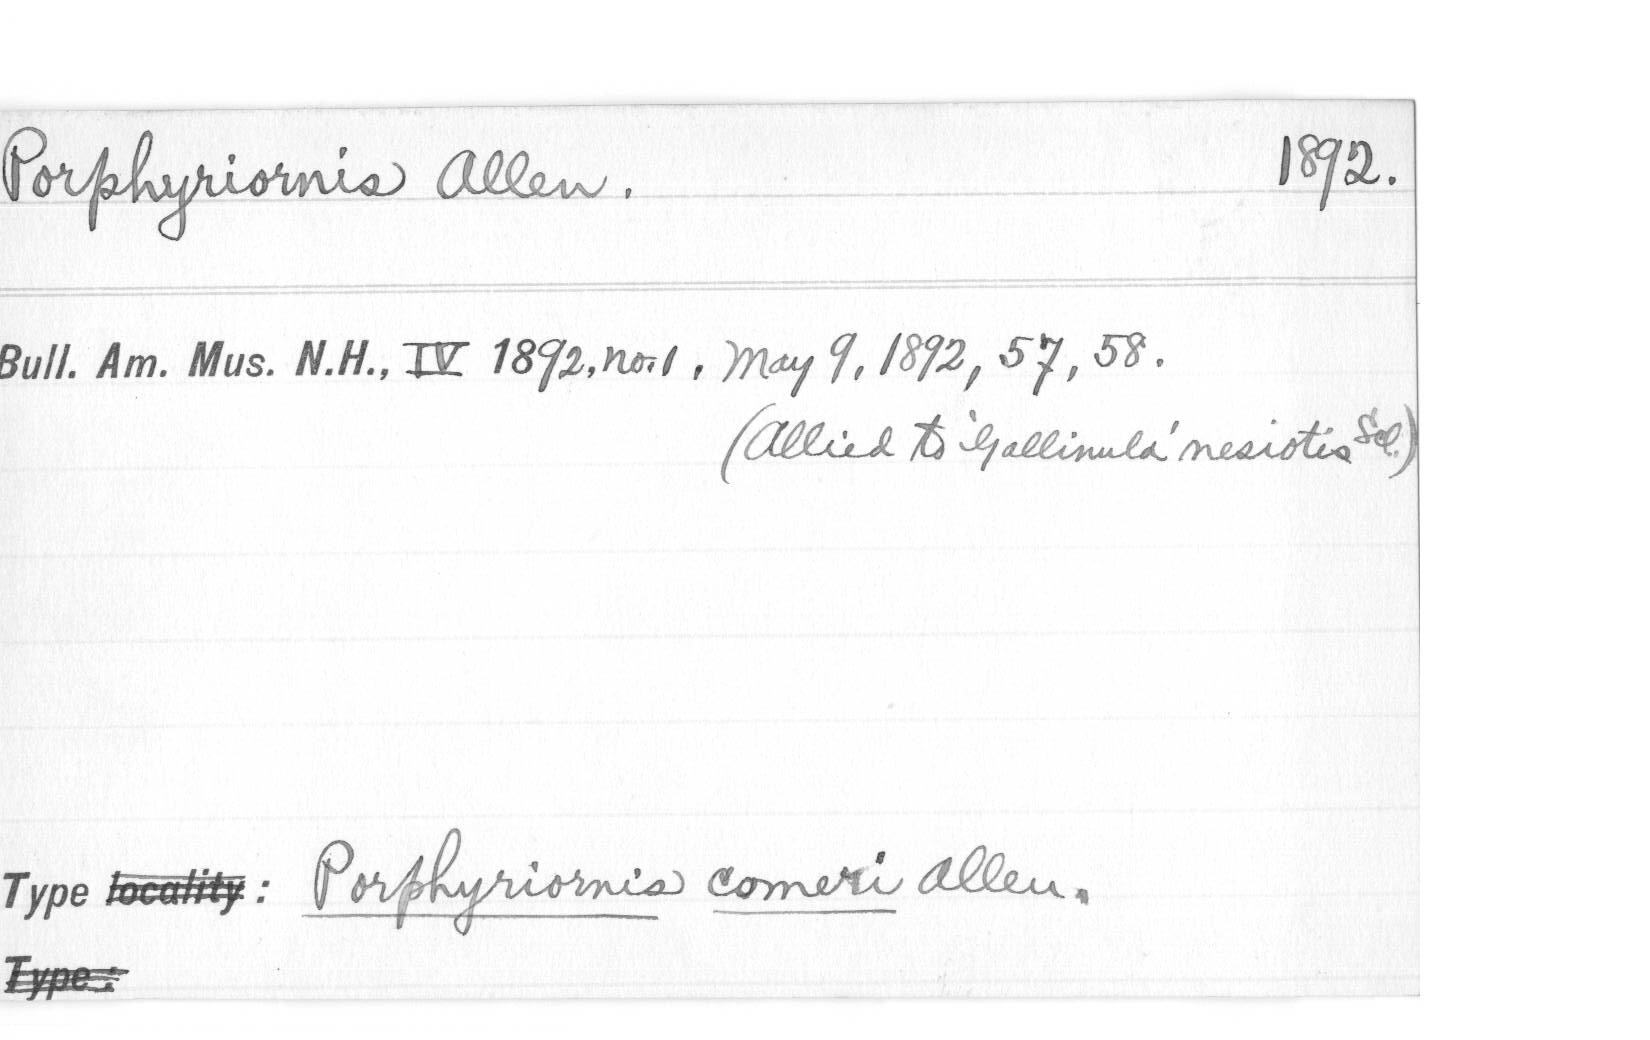 Porphyriornis Allen. 1892.
Bull. Am. Mus. N.H., IV 1892, no. 1, May 9, 1892, 57, 58.
(Allied to 'Gallinula' nesiotis Scl.)
Type locality: Porphyriornis comeri Allen.
Type: